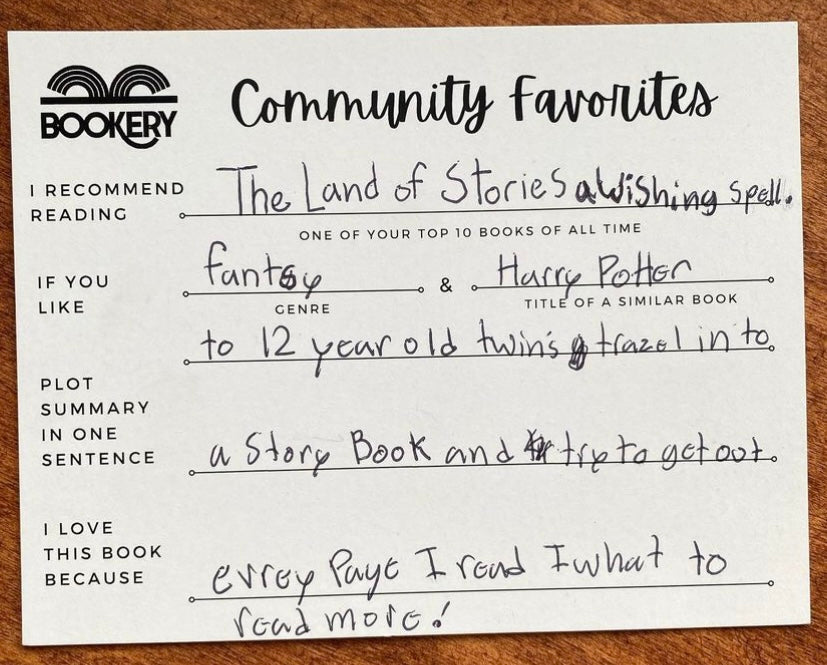 BOOKERY
Community Favorites
I RECOMMEND READING
The Land of Stories a Wishing Spell.
ONE OF YOUR TOP 10 BOOKS OF ALL TIME
IF YOU LIKE
fantsy & Harry Potter
GENRE
TITLE OF A SIMILAR BOOK
PLOT SUMMARY IN ONE SENTENCE
to 12 year old twin's trazel in to
a Story Book and try to get out.
I LOVE THIS BOOK BECAUSE
evrey Page I read I what to
read more!